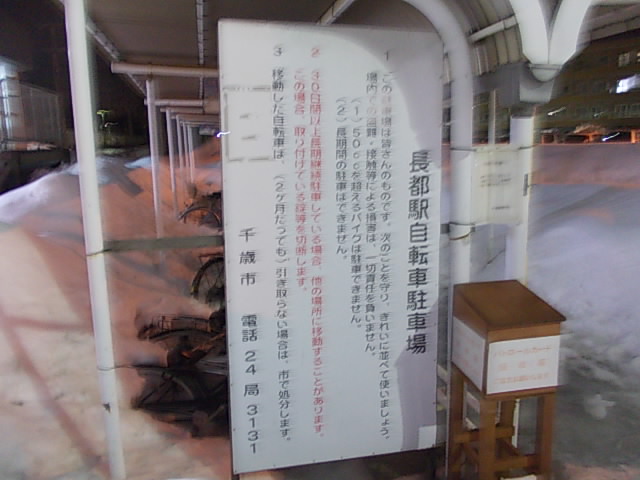 長都駅自転車駐車場
1 この駐車場は皆さんのものです。次のことを守り、きれいに並べて使いましょう。
場内での盗難・接触等による損害は、一切責任を負いません。
(1) 50ccを超えるバイクは駐車できません。
(2) 長期間の駐車はできません。
2 30日間以上長期継続駐車している場合、他の場所に移動することがあります。
この場合、取り付けている錠等を切断します。
3 移動した自転車は、(2ヶ月たっても)引き取らない場合は、市で処分します。
千歳市 電話 24局 3131
パトロールカード